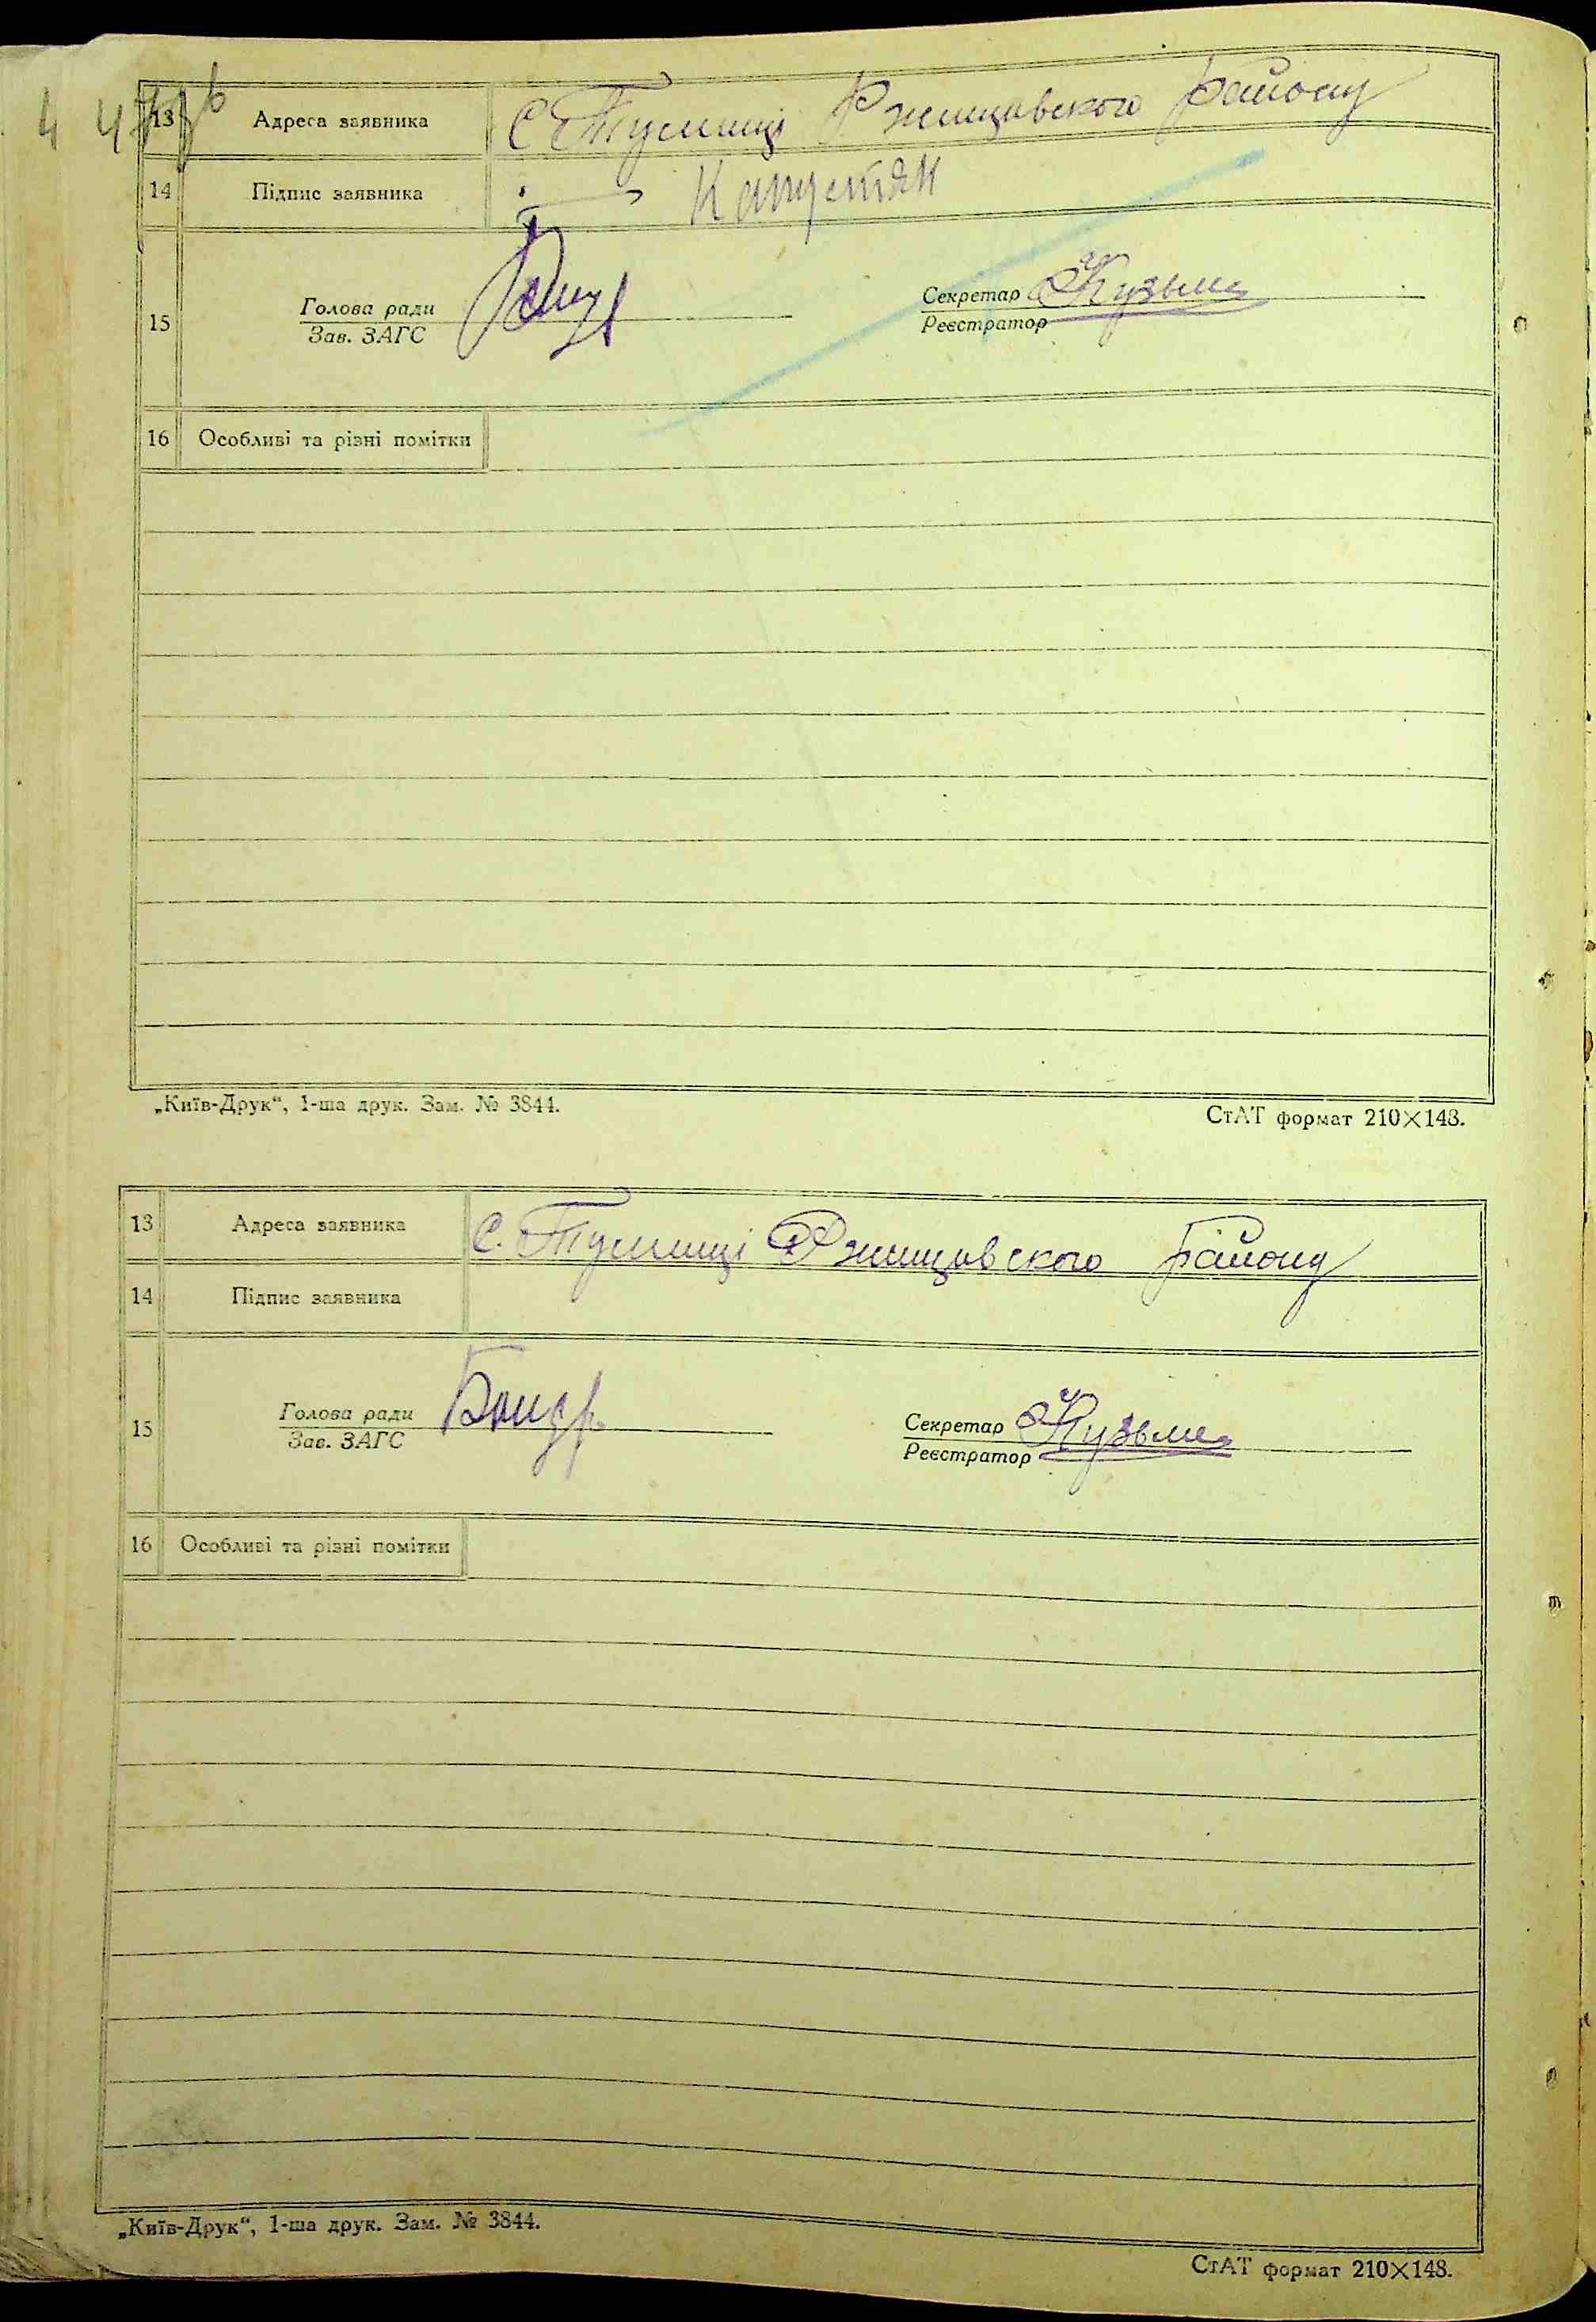 13 Адреса заявника С Тулинці Ржищовского району
14 Підпис заявника Капустян
15 Голова ради Зав. ЗАГС Секретар Кузьме Реєстратор
16 Особливі та різні помітки
„Київ-Друк“, 1-ша друк. Зам. № 3844.
СтАТ формат 210×148.
13 Адреса заявника С. Тулинці Ржищовского району
14 Підпис заявника
15 Голова ради Зав. ЗАГС Секретар Кузьме Реєстратор
16 Особливі та різні помітки
„Київ-Друк“, 1-ша друк. Зам. № 3844.
СтАТ формат 210×148.